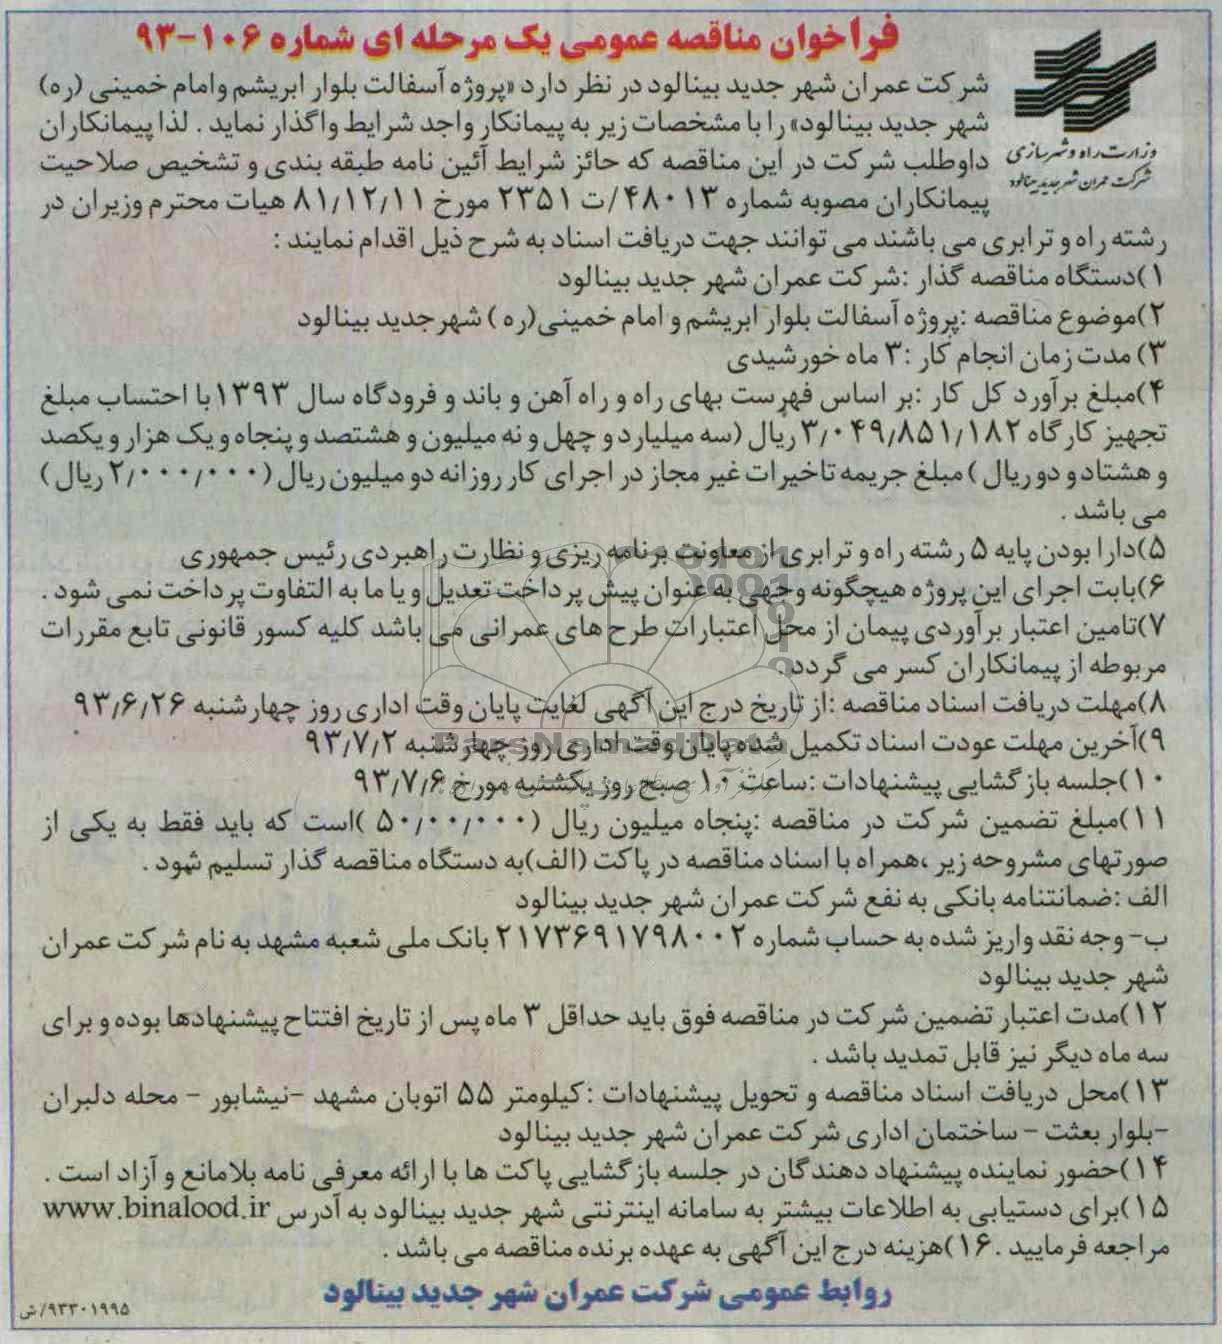 فراخوان مناقصه عمومی یک مرحله ای شماره ۱۰۶-۹۳
وزارت راه و شهرسازی
شرکت عمران شهر جدید بینالود
شرکت عمران شهر جدید بینالود در نظر دارد «پروژه آسفالت بلوار ابریشم وامام خمینی (ره)
شهر جدید بینالود» را با مشخصات زیر به پیمانکار واجد شرایط واگذار نماید . لذا پیمانکاران
داوطلب شرکت در این مناقصه که حائز شرایط آئین نامه طبقه بندی و تشخیص صلاحیت
پیمانکاران مصوبه شماره ۴۸۰۱۳/ت ۲۳۵۱ مورخ ۸۱/۱۲/۱۱ هیات محترم وزیران در
رشته راه و ترابری می باشند می توانند جهت دریافت اسناد به شرح ذیل اقدام نمایند :
۱)دستگاه مناقصه گذار :شرکت عمران شهر جدید بینالود
۲)موضوع مناقصه :پروژه آسفالت بلوار ابریشم و امام خمینی(ره ) شهرجدید بینالود
۳) مدت زمان انجام کار :۳ ماه خورشیدی
۴)مبلغ برآورد کل کار :بر اساس فهرست بهای راه و راه آهن و باند و فرودگاه سال ۱۳۹۳با احتساب مبلغ
تجهیز کارگاه ۳/۰۴۹/۸۵۱/۱۸۲ریال (سه میلیارد و چهل و نه میلیون و هشتصد و پنجاه و یک هزار و یکصد
و هشتاد و دو ریال ) مبلغ جریمه تاخیرات غیر مجاز در اجرای کار روزانه دو میلیون ریال (۲/۰۰۰/۰۰۰ریال )
می باشد .
۵)دارا بودن پایه ۵ رشته راه و ترابری از معاونت برنامه ریزی و نظارت راهبردی رئیس جمهوری
۶)بابت اجرای این پروژه هیچگونه وجهی به عنوان پیش پرداخت تعدیل و یا ما به التفاوت پرداخت نمی شود .
۷)تامین اعتبار برآوردی پیمان از محل اعتبارات طرح های عمرانی می باشد کلیه کسور قانونی تابع مقررات
مربوطه از پیمانکاران کسر می گردد.
۸)مهلت دریافت اسناد مناقصه :از تاریخ درج این آگهی لغایت پایان وقت اداری روز چهارشنبه ۹۳/۶/۲۶
ParsNamadData
۹)آخرین مهلت عودت اسناد تکمیل شده پایان وقت اداری روز چهارشنبه ۹۳/۷/۲
۱۰)جلسه بازگشایی پیشنهادات :ساعت ۱۰ صبح روز یکشنبه مورخ ۹۳/۷/۶
۱۱)مبلغ تضمین شرکت در مناقصه :پنجاه میلیون ریال (۵۰/۰۰/۰۰۰ )است که باید فقط به یکی از
صورتهای مشروحه زیر ،همراه با اسناد مناقصه در پاکت (الف)به دستگاه مناقصه گذار تسلیم شود .
الف :ضمانتنامه بانکی به نفع شرکت عمران شهر جدید بینالود
ب- وجه نقد واریز شده به حساب شماره ۲۱۷۳۶۹۱۷۹۸۰۰۲ بانک ملی شعبه مشهد به نام شرکت عمران
شهر جدید بینالود
۱۲)مدت اعتبار تضمین شرکت در مناقصه فوق باید حداقل ۳ ماه پس از تاریخ افتتاح پیشنهادها بوده و برای
سه ماه دیگر نیز قابل تمدید باشد .
۱۳)محل دریافت اسناد مناقصه و تحویل پیشنهادات :کیلومتر ۵۵ اتوبان مشهد -نیشابور - محله دلبران
-بلوار بعثت - ساختمان اداری شرکت عمران شهر جدید بینالود
۱۴)حضور نماینده پیشنهاد دهندگان در جلسه بازگشایی پاکت ها با ارائه معرفی نامه بلامانع و آزاد است .
۱۵)برای دستیابی به اطلاعات بیشتر به سامانه اینترنتی شهر جدید بینالود به آدرس www.binalood.ir
مراجعه فرمایید .۱۶)هزینه درج این آگهی به عهده برنده مناقصه می باشد .
روابط عمومی شرکت عمران شهر جدید بینالود
۹۳۳۰۱۹۹۵/ش